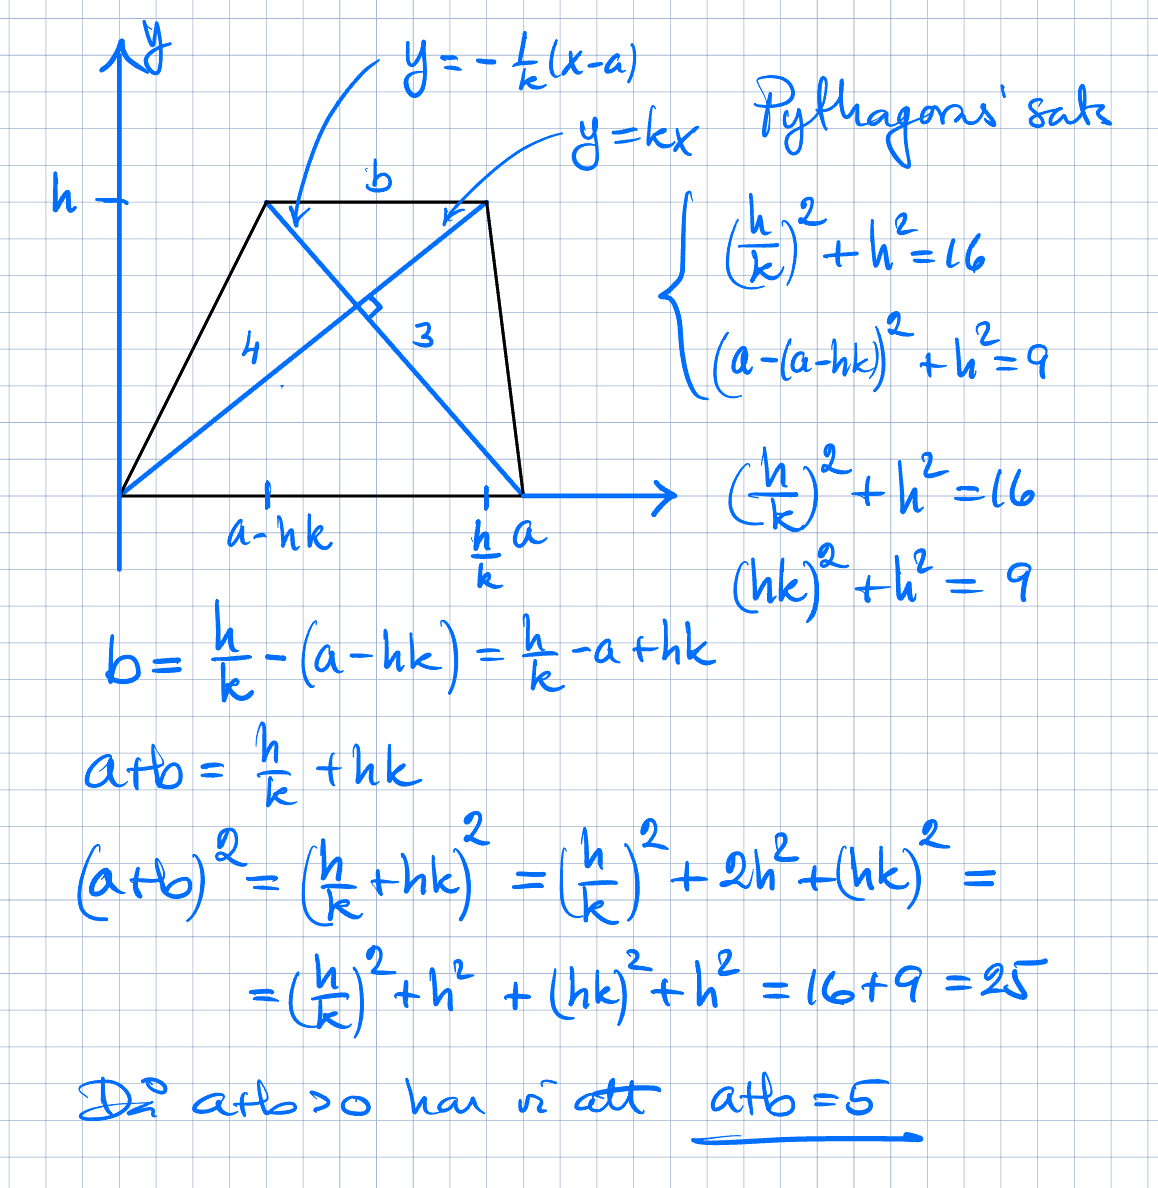 y
y = -1/k (x-a)
y = kx
Pythagoras' sats
b
h
(h/k)² + h² = 16
(a-(a-hk))² + h² = 9
4
3
a-hk
h/k
a
(h/k)² + h² = 16
(hk)² + h² = 9
b = h/k - (a-hk) = h/k - a + hk
a+b = h/k + hk
(a+b)² = (h/k + hk)² = (h/k)² + 2h² + (hk)² =
= (h/k)² + h² + (hk)² + h² = 16+9 = 25
Då a+b>0 har vi att a+b=5